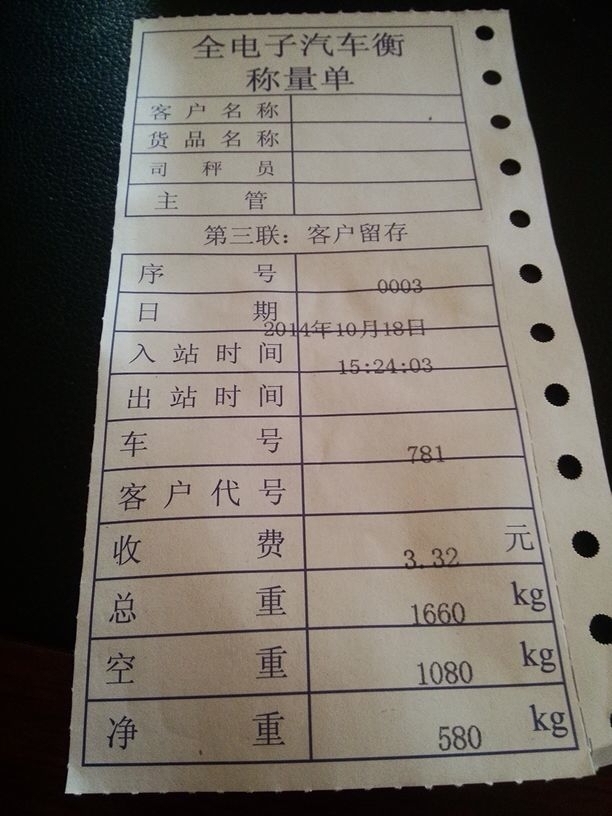 全电子汽车衡
称量单
客户名称
货品名称
司秤员
主管
第三联：客户留存
序号 0003
日期 2014年10月18日
入站时间 15:24:03
出站时间
车号 781
客户代号
收费 3.32 元
总重 1660 kg
空重 1080 kg
净重 580 kg